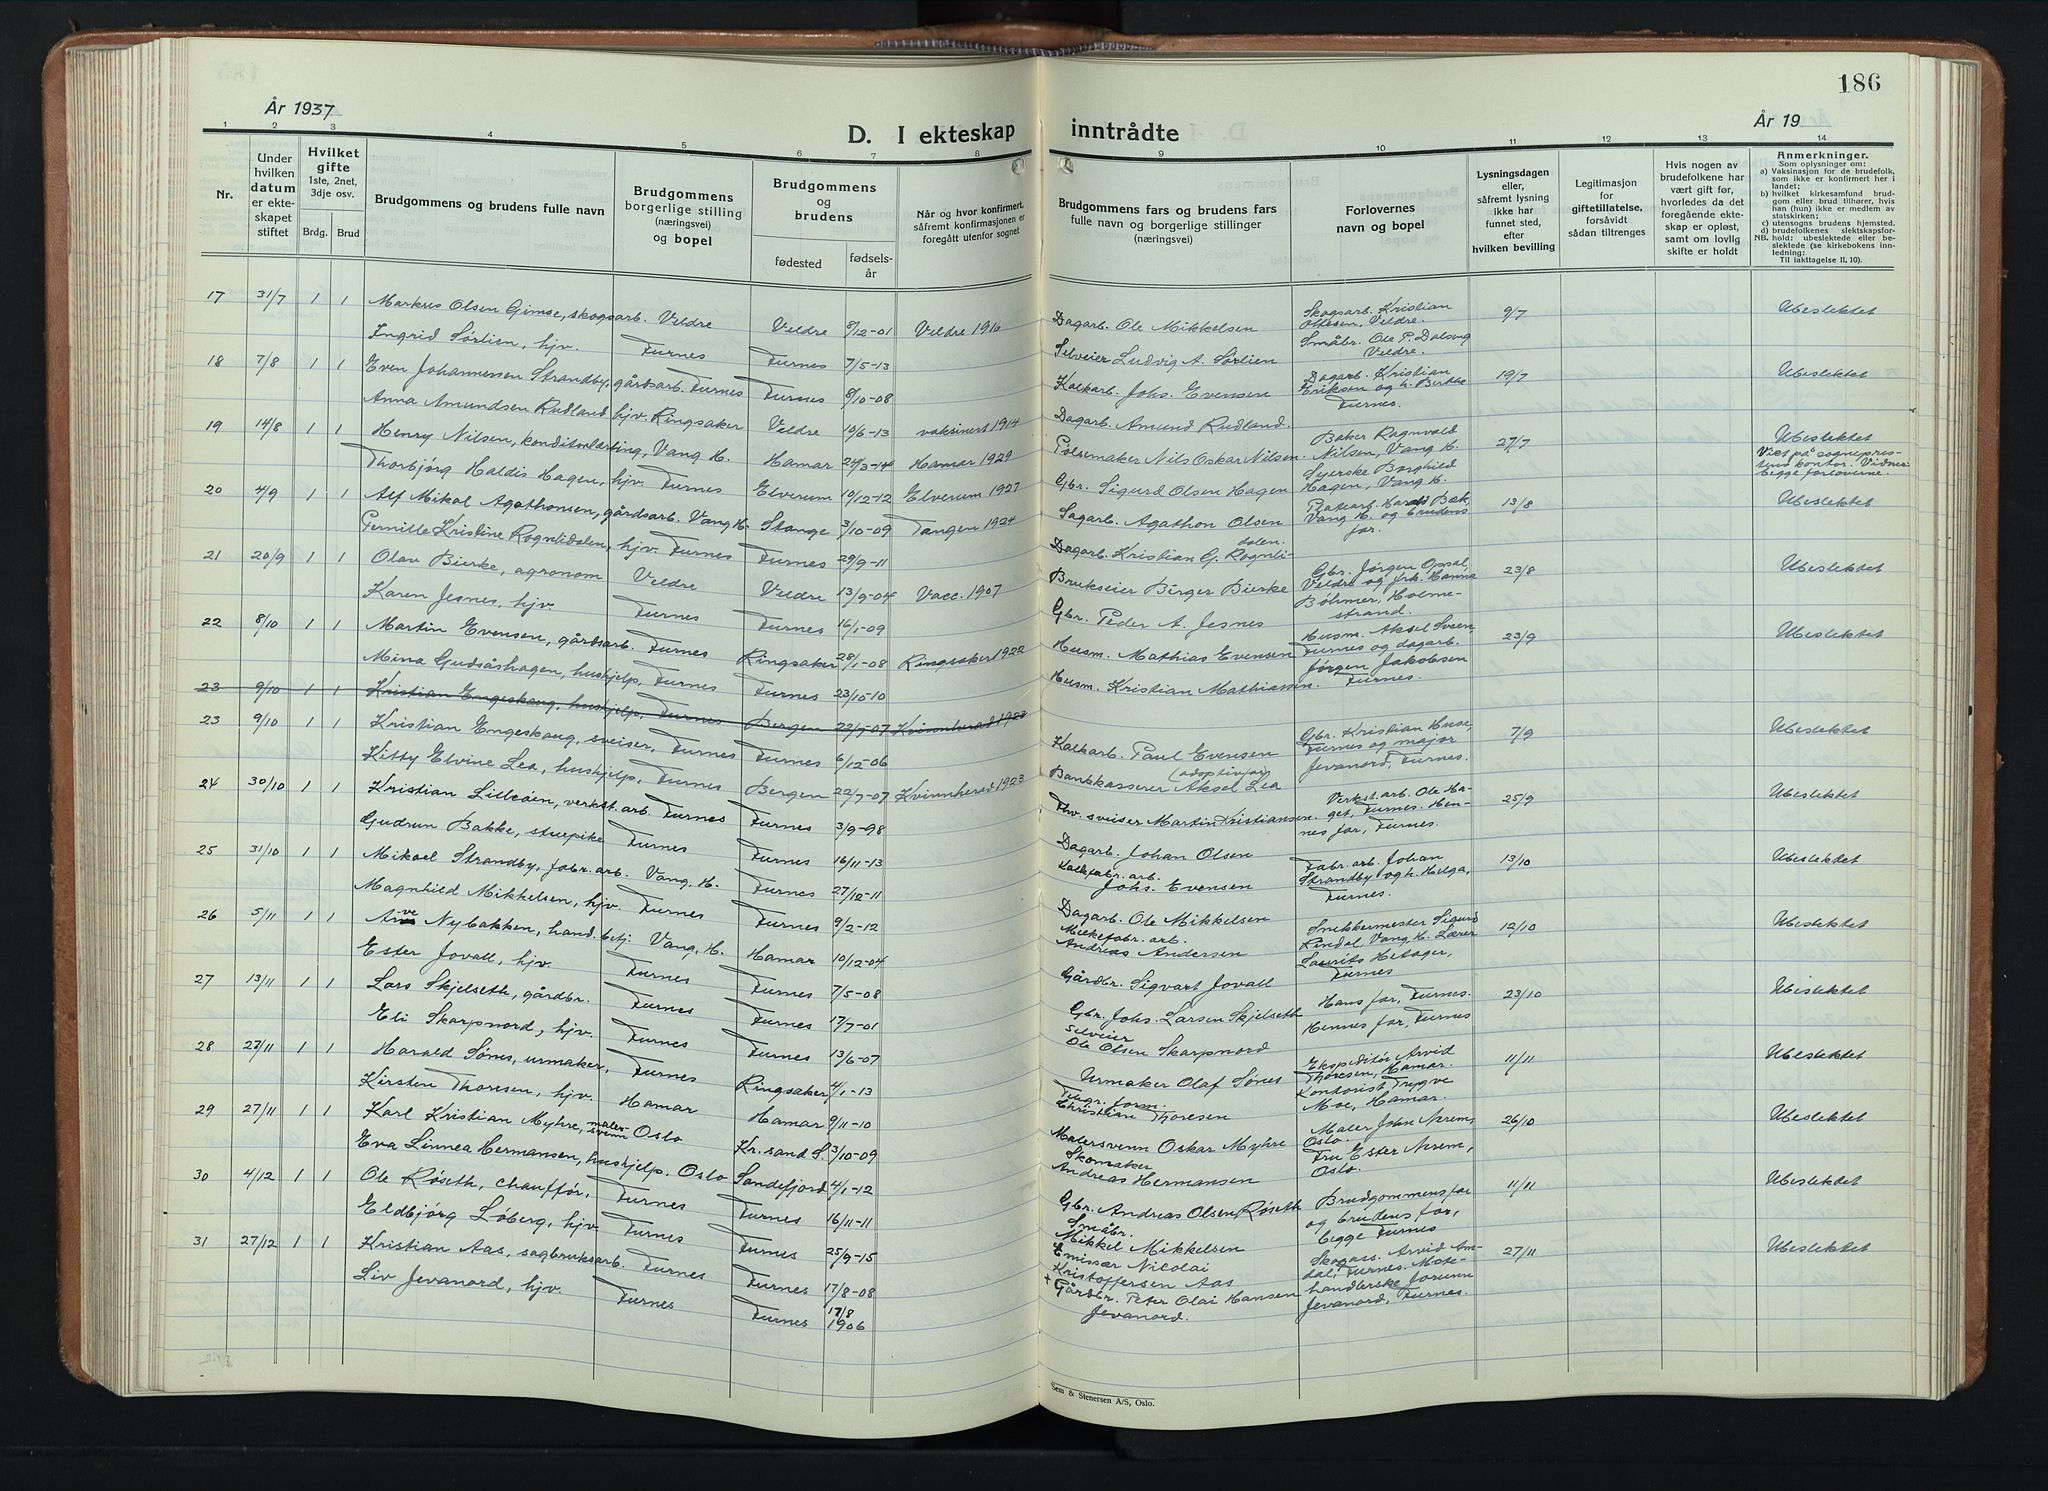 186
År 1937
D. I ekteskap inntrådte
År 19
1 2 3 4 5 6 7 8 9 10 11 12 13 14
Nr.
Under hvilken datum er ekteskapet stiftet
Hvilket gifte 1ste, 2net, 3dje osv.
Brdg. Brud
Brudgommens og brudens fulle navn
Brudgommens borgerlige stilling (næringsvei) og bopel
Brudgommens og brudens
fødested
fødselsår
Når og hvor konfirmert, såfremt konfirmasjonen er foregått utenfor sognet
Brudgommens fars og brudens fars fulle navn og borgerlige stillinger (næringsvei)
Forlovernes navn og bopel
Lysningsdagen eller, såfremt lysning ikke har funnet sted, efter hvilken bevilling
Legitimasjon for giftetillatelse, forsåvidt sådan tiltrenges
Hvis nogen av brudefolkene har vært gift før, hvorledes da det foregående ekteskap er opløst, samt om lovlig skifte er holdt
Anmerkninger.
Som oplysninger om:
a) Vaksinasjon for de brudefolk, som ikke er konfirmert her i landet;
b) hvilket kirkesamfund brudgom eller brud tilhører, hvis han (hun) ikke er medlem av statskirken;
c) utensogns brudens hjemsted.
d) brudefolkenes slektskapsforhold: ubeslektede eller beslektede (se kirkebokens innledning:
NB. Til iakttagelse II, 10).
17 31/7 1 1 Markus Olsen Gimse, skogsarb. Veldre Veldre 8/12-01 Veldre 1916 Dagarb. Ole Mikkelsen Skogsarb. Kristian Ottesen, Veldre. 9/7 Ubeslektet
Ingrid Sørlien, hjv. Furnes Furnes 7/5-13 Selveier Ludvig A. Sørlien Småbr. Ole P. Dalseng Veldre.
18 7/8 1 1 Even Johannessen Strandby, gårdsarb. Furnes Furnes 8/10-08 Kalkarb. Johs. Evensen Dagarb. Kristian Eriksen og h. Birthe Furnes. 19/7 Ubeslektet
Anna Amundsen Rudland, hjv. Ringsaker Veldre 10/6-13 vaksinert 1914 Dagarb. Amund Rudland.
19 14/8 1 1 Henry Nilsen, konditorlærling, Vang H. Hamar 24/3-14 Hamar 1929 Pølsemaker Nils Oskar Nilsen Baker Ragnvald Nilsen, Vang H. 27/7 Ubeslektet
Thorbjørg Haldis Hagen, hjv. Furnes Elverum 10/12-12 Elverum 1927 Gbr. Sigurd Olsen Hagen Syerske Borghild Hagen, Vang H. Viet på sogneprestens kontor. Vidner begge forloverne.
20 4/9 1 1 Alf Mikal Agathonsen, gårdsarb. Vang H. Stange 3/10-09 Tangen 1924 Sagarb. Agathon Olsen Vang H. og brudens far. 13/8 Ubeslektet
Pernille Kristine Rognlidalen, hjv. Furnes Furnes 29/9-11 Dagarb. Kristian G. Rognlidalen.
21 20/9 1 1 Olav Bierke, agronom Veldre Veldre 13/9-04 Vacc. 1907 Brukseier Birger Bierke Gbr. Jørgen Opsal, Veldre og frk. Hanna Bøhmer, Holmestrand. 23/8 Ubeslektet
Karen Jesnes, hjv. Furnes Furnes 16/1-09 Gbr. Peder A. Jesnes
22 8/10 1 1 Martin Evensen, gårdsarb. Furnes Ringsaker 28/1-08 Ringsaker 1922 Husm. Mathias Evensen Husm. Aksel Sveen, Furnes og dagarb. Jørgen Jakobsen Furnes. 23/9 Ubeslektet
Mina Gudsåshagen, hushjelp, Furnes Furnes 23/10-10 Husm. Kristian Mathiassen.
23 9/10 1 1 Kristian Engeskaug, hushjelp, Furnes Bergen 22/7-07 Kvinnherad 1923
23 9/10 1 1 Kristian Engeskaug, sveiser, Furnes Furnes 6/12-06 Kalkarb. Paul Evensen Gbr. Kristian Huse, Furnes og major Jevanord, Furnes. 7/9 Ubeslektet
Kitty Elvine Lea, hushjelp, Furnes Bergen 22/7-07 Kvinnherad 1923 Bankkasserer (adoptivfar) Aksel Lea
24 30/10 1 1 Kristian Lilleåen, verkst. arb. Furnes Furnes 3/9-98 Fhv. sveiser Martin Kristiansen. Verkst. arb. Ole Haget, Furnes. Hennes far, Furnes. 25/9 Ubeslektet
Gudrun Bakke, stuepike Furnes Furnes 16/11-13 Dagarb. Johan Olsen
25 31/10 1 1 Mikael Strandby, fabr. arb. Vang, H. Furnes 27/10-11 Kalkfabr. arb. Johs. Evensen Fabr. arb. Johan Strandby og h. Helga, Furnes. 13/10 Ubeslektet
Magnhild Mikkelsen, hjv. Furnes Furnes 9/2-12 Dagarb. Ole Mikkelsen
26 5/11 1 1 Arve Nybakken, hand. betj. Vang, H. Hamar 10/12-04 Melkefabr. arb. Andreas Andersen Snekkermester Sigurd Lindal, Vang, H. Lærer Laurits Hetager, Furnes 12/10 Ubeslektet
Ester Jovall, hjv. Furnes Furnes 7/5-08 Gårdbr. Sigvart Jovall
27 13/11 1 1 Lars Skjelseth, gårdbr. Furnes Furnes 17/7-01 Gbr. Johs. Larsen Skjelseth Hans far, Furnes. 23/10 Ubeslektet
Eli Skarpnord, hjv. Furnes Furnes 13/6-07 Selveier Ole Olsen Skarpnord Hennes far, Furnes
28 27/11 1 1 Harald Sønes, urmaker, Furnes Ringsaker 4/1-13 Urmaker Olaf Sønes Ekspeditør Arvid Thoresen, Hamar. Kontorist Trygve Moe, Hamar. 11/11 Ubeslektet
Kirsten Thoresen, hjv. Hamar Hamar 9/11-10 Telegr. form. Christian Thoresen
29 27/11 1 1 Karl Kristian Myhre, malersvenn Oslo Kr. sand S. 3/10-09 Malersvenn Oskar Myhre Maler John Nerem, Oslo. 26/10 Ubeslektet
Eva Linnea Hermansen, hushjelp. Oslo Sandefjord 4/1-12 Skomaker Andreas Hermansen Fru Ester Nerem, Oslo.
30 4/12 1 1 Ole Røseth, chauffør, Furnes Furnes 16/11-11 Gbr. Andreas Olsen Røseth Brudgommens far og brudens far, begge Furnes 11/11 Ubeslektet
Eldbjørg Løberg, hjv. Furnes Furnes 25/9-15 Småbr. Mikkel Mikkelsen
31 27/12 1 1 Kristian Aas, sagbruksarb. Furnes Furnes 17/8-08 Emissær Nicolai Kristoffersen Aas Skogass. Arvid Amdal, Furnes. Motehandlerske Jorunn Jevanord, Furnes. 27/11 Ubeslektet
Liv Jevanord, hjv. Furnes Furnes 17/8 1906 + Gårdbr. Peter Olai Hansen Jevanord.
Sem & Stenersen A/S, Oslo.